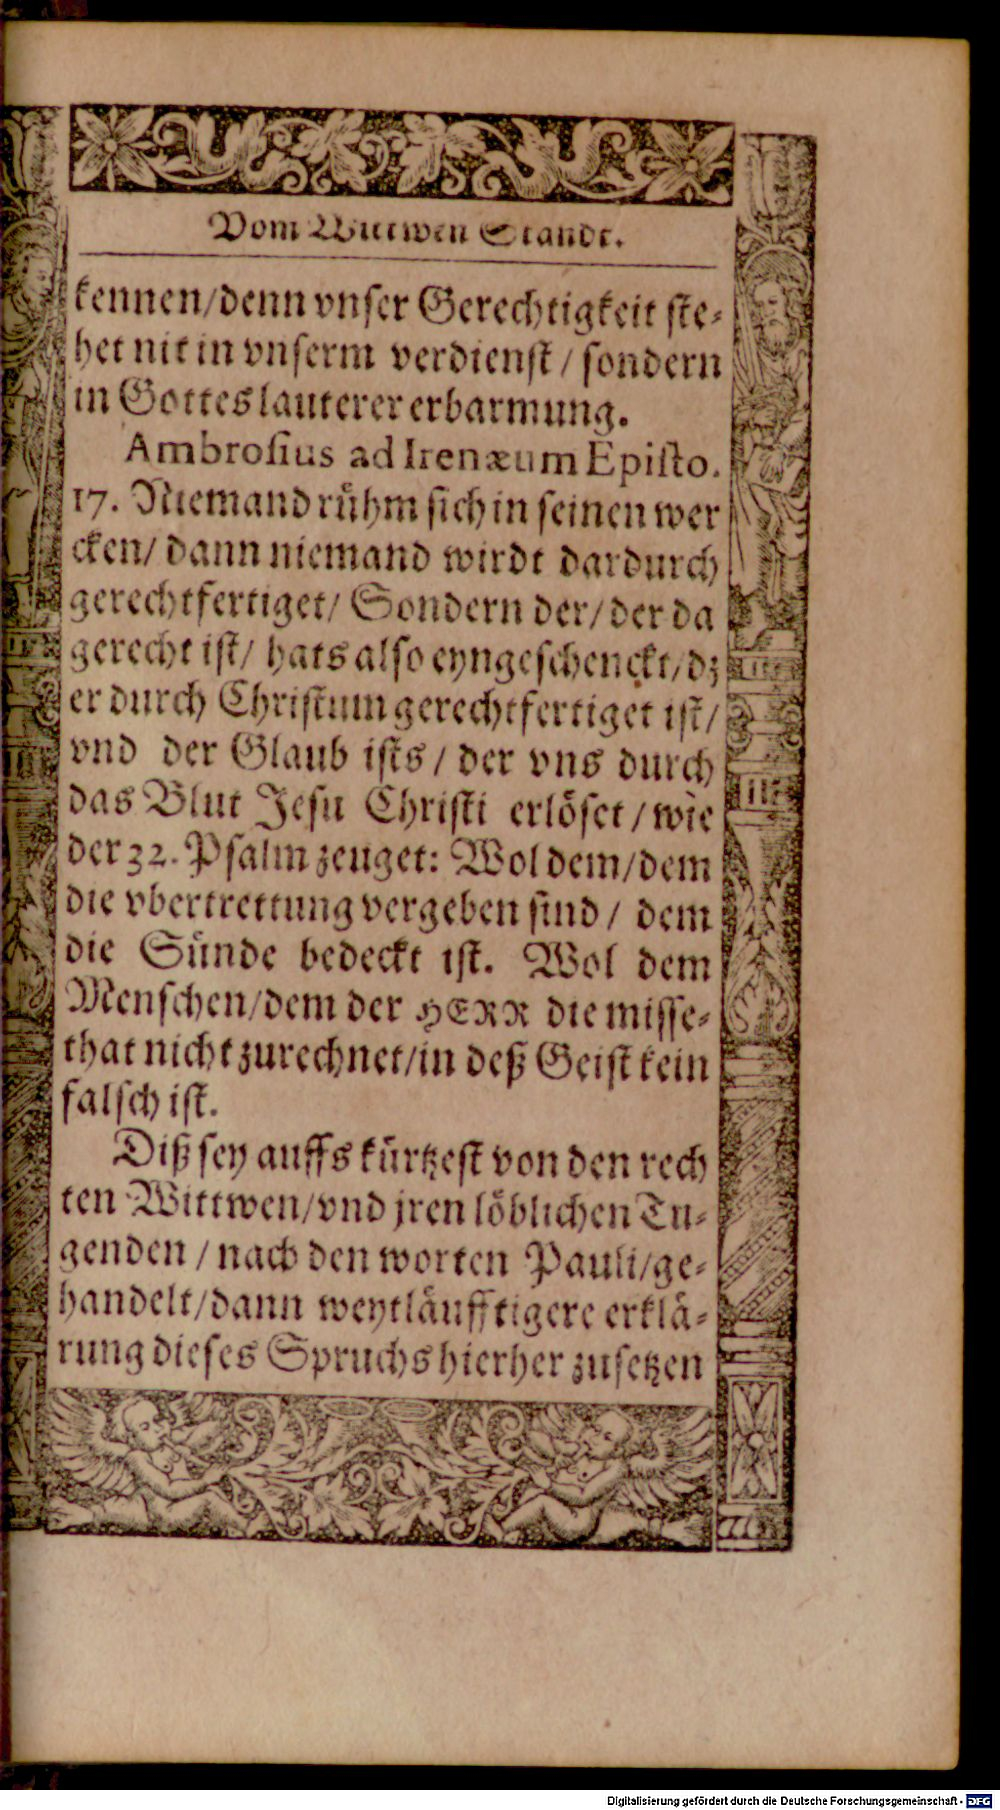 Vom Wittwen Standt.
kennen/denn vnser Gerechtigkeit ste⸗
het nit in vnserm verdienst / sondern
in Gottes lauterer erbarmung.
Ambrosius ad Irenæum Episto.
17. Niemand rühm sich in seinen wer
cken/ dann niemand wirdt dardurch
gerechtfertiget/ Sondern der/ der da
gerecht ist/ hats also eyngeschenckt/dz
er durch Christum gerechtfertiget ist/
vnd der Glaub ists / der vns durch
das Blut Jesu Christi erlöset / wie
der 32. Psalm zeuget: Wol dem/dem
die vbertrettung vergeben sind / dem
die Sünde bedeckt ist. Wol dem
Menschen/dem der HERR die misse⸗
that nicht zurechnet/in deß Geist kein
falsch ist.
Diß sey auffs kürtzest von den rech
ten Wittwen/vnd jren löblichen Tu⸗
genden / nach den worten Pauli/ge⸗
handelt/dann weytläufftigere erklä⸗
rung dieses Spruchs hierher zusetzen
Digitalisierung gefördert durch die Deutsche Forschungsgemeinschaft - DFG